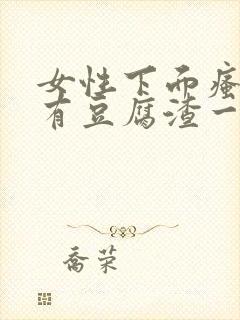 女性下面瘙
有豆腐渣一
乔荣